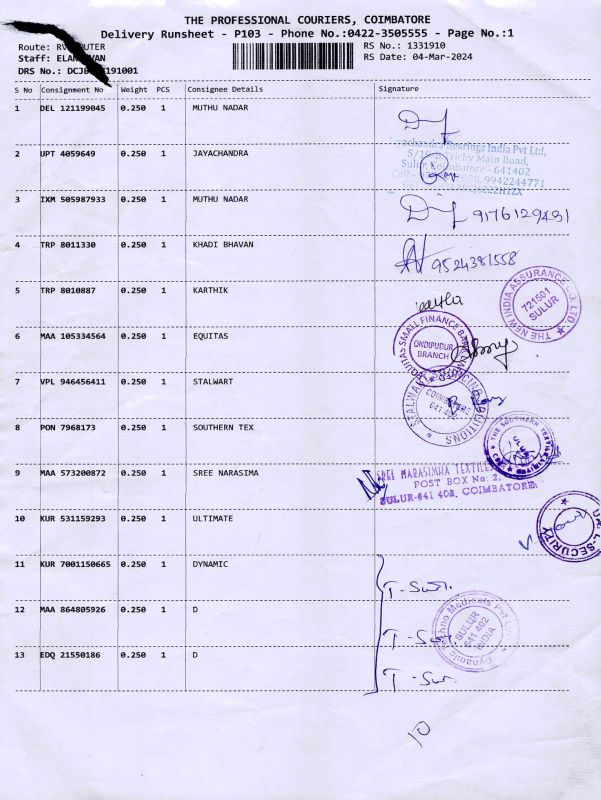 THE PROFESSIONAL COURIERS, COIMBATORE
Delivery Runsheet - P103 - Phone No.:0422-3505555 - Page No.:1
Route: RV
RS No.: 1331910
Staff: ELAN VAN
RS Date: 04-Mar-2024
DRS No.: DCJB 191001
S No Consignment No Weight PCS Consignee Details Signature
1 DEL 121199045 0.250 1 MUTHU NADAR
2 UPT 4059649 0.250 1 JAYACHANDRA
Bearings India Pvt Ltd,
Trichy Main Road,
Sulur, Coimbatore - 641402
9942244771
3 IXM 505987933 0.250 1 MUTHU NADAR
9176129431
4 TRP 8011330 0.250 1 KHADI BHAVAN
9524381558
5 TRP 8010887 0.250 1 KARTHIK
THE NEW INDIA ASSURANCE CO. LTD
721501
SULUR
6 MAA 105334564 0.250 1 EQUITAS
EQUITAS SMALL FINANCE BANK
ONDIPUDUR
BRANCH
7 VPL 946456411 0.250 1 STALWART
641 402
8 PON 7968173 0.250 1 SOUTHERN TEX
THE SOUTHERN
9 MAA 573200872 0.250 1 SREE NARASIMA
SREE NARASIMHA TEXTILE
POST BOX No: 2,
SULUR-641 402, COIMBATORE
10 KUR 531159293 0.250 1 ULTIMATE
SECURITY
11 KUR 7001150665 0.250 1 DYNAMIC
12 MAA 864805926 0.250 1 D
Dynamic Techno Medicals Pvt Ltd
SULUR
641 402
INDIA
13 EDQ 21550186 0.250 1 D
10